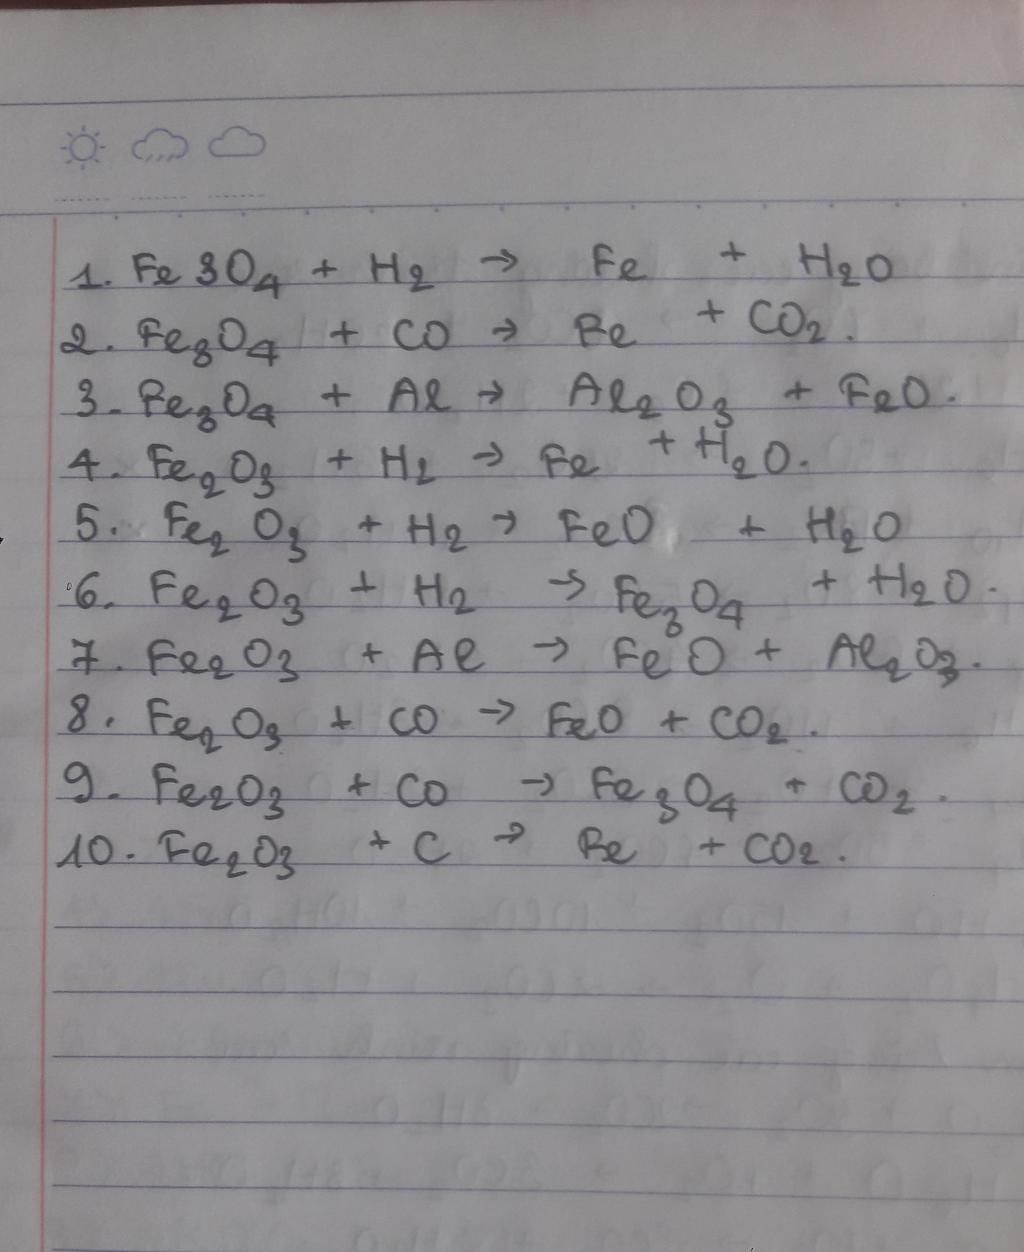 1. Fe3O4 + H2 → Fe + H2O
2. Fe3O4 + CO → Fe + CO2.
3. Fe3O4 + Al → Al2O3 + FeO.
4. Fe2O3 + H2 → Fe + H2O.
5. Fe2O3 + H2 → FeO + H2O
6. Fe2O3 + H2 → Fe3O4 + H2O.
7. Fe2O3 + Al → FeO + Al2O3.
8. Fe2O3 + CO → FeO + CO2.
9. Fe2O3 + CO → Fe3O4 + CO2.
10. Fe2O3 + C → Fe + CO2.